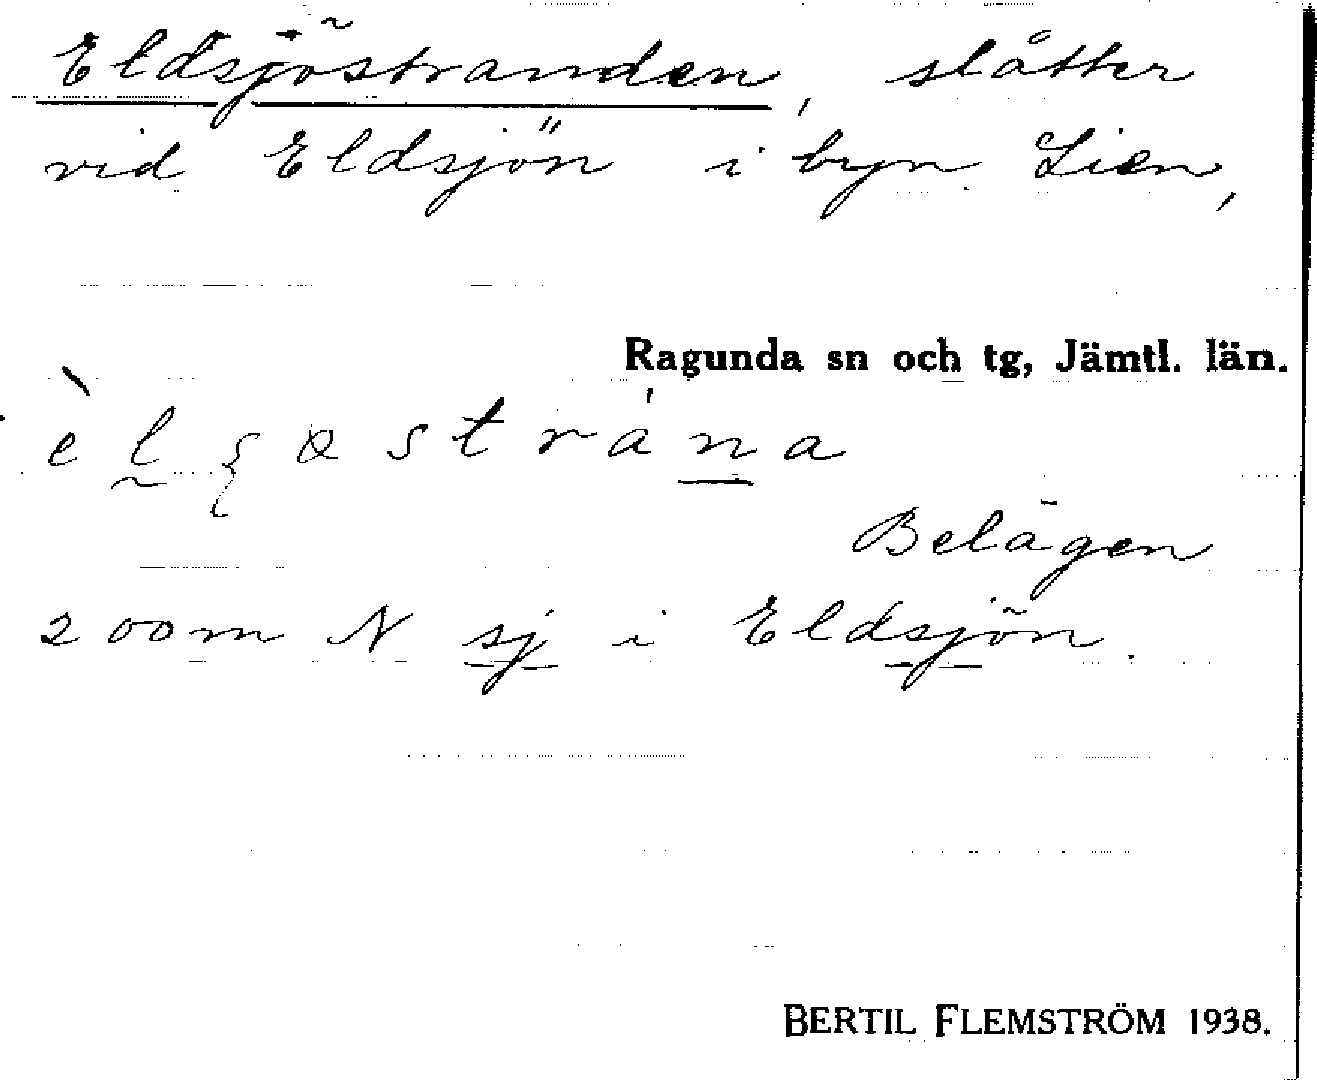 Eldsjöstranden, slåtter
vid Eldsjön i byn Lien,
Ragunda sn och tg, Jämtl. län.
Belägen
200m N sj i Eldsjön.
BERTIL FLEMSTRÖM 1938.